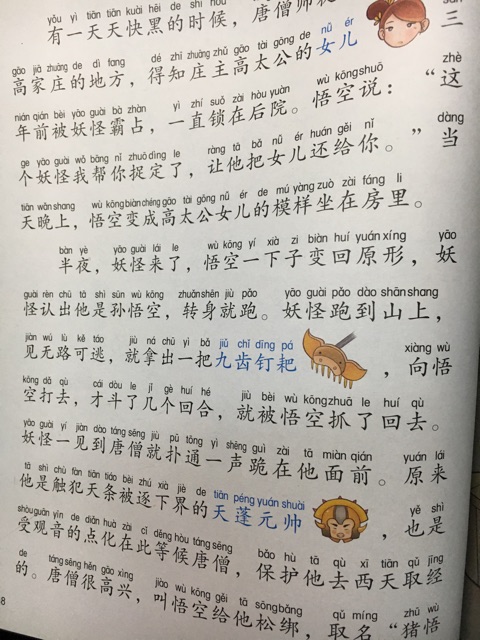 yǒu yì tiān tiān kuài hēi de shí hou
有一天天快黑的时候，唐僧师
gāo jiā zhuāng de dì fang dé zhī zhuāng zhǔ gāo tài gōng de nǚ ér sān
高家庄的地方，得知庄主高太公的女儿三
nián qián bèi yāo guài bà zhàn yì zhí suǒ zài hòu yuàn wù kōng shuō zhè
年前被妖怪霸占，一直锁在后院。悟空说：“这
ge yāo guài wǒ bāng nǐ zhuō dìng le ràng tā bǎ nǚ ér huán gěi nǐ dàng
个妖怪我帮你捉定了，让他把女儿还给你。”当
tiān wǎn shang wù kōng biàn chéng gāo tài gōng nǚ ér de mú yàng zuò zài fáng li
天晚上，悟空变成高太公女儿的模样坐在房里。
bàn yè yāo guài lái le wù kōng yí xià zi biàn huí yuán xíng yāo
半夜，妖怪来了，悟空一下子变回原形，妖
guài rèn chū tā shì sūn wù kōng zhuǎn shēn jiù pǎo yāo guài pǎo dào shān shang
怪认出他是孙悟空，转身就跑。妖怪跑到山上，
jiàn wú lù kě táo jiù ná chū yì bǎ jiǔ chǐ dīng pá xiàng wù
见无路可逃，就拿出一把九齿钉耙，向悟
kōng dǎ qù cái dòu le jǐ gè huí hé jiù bèi wù kōng zhuā le huí qù
空打去，才斗了几个回合，就被悟空抓了回去。
yāo guài yí jiàn dào táng sēng jiù pū tōng yì shēng guì zài tā miàn qián yuán lái
妖怪一见到唐僧就扑通一声跪在他面前。原来
tā shì chù fàn tiān tiáo bèi zhú xià jiè de tiān péng yuán shuài yě shì
他是触犯天条被逐下界的天蓬元帅，也是
shòu guān yīn de diǎn huà zài cǐ děng hòu táng sēng bǎo hù tā qù xī tiān qǔ jīng
受观音的点化在此等候唐僧，保护他去西天取经
de táng sēng hěn gāo xìng jiào wù kōng gěi tā sōng bǎng qǔ míng zhū wù
的。唐僧很高兴，叫悟空给他松绑，取名“猪悟
8